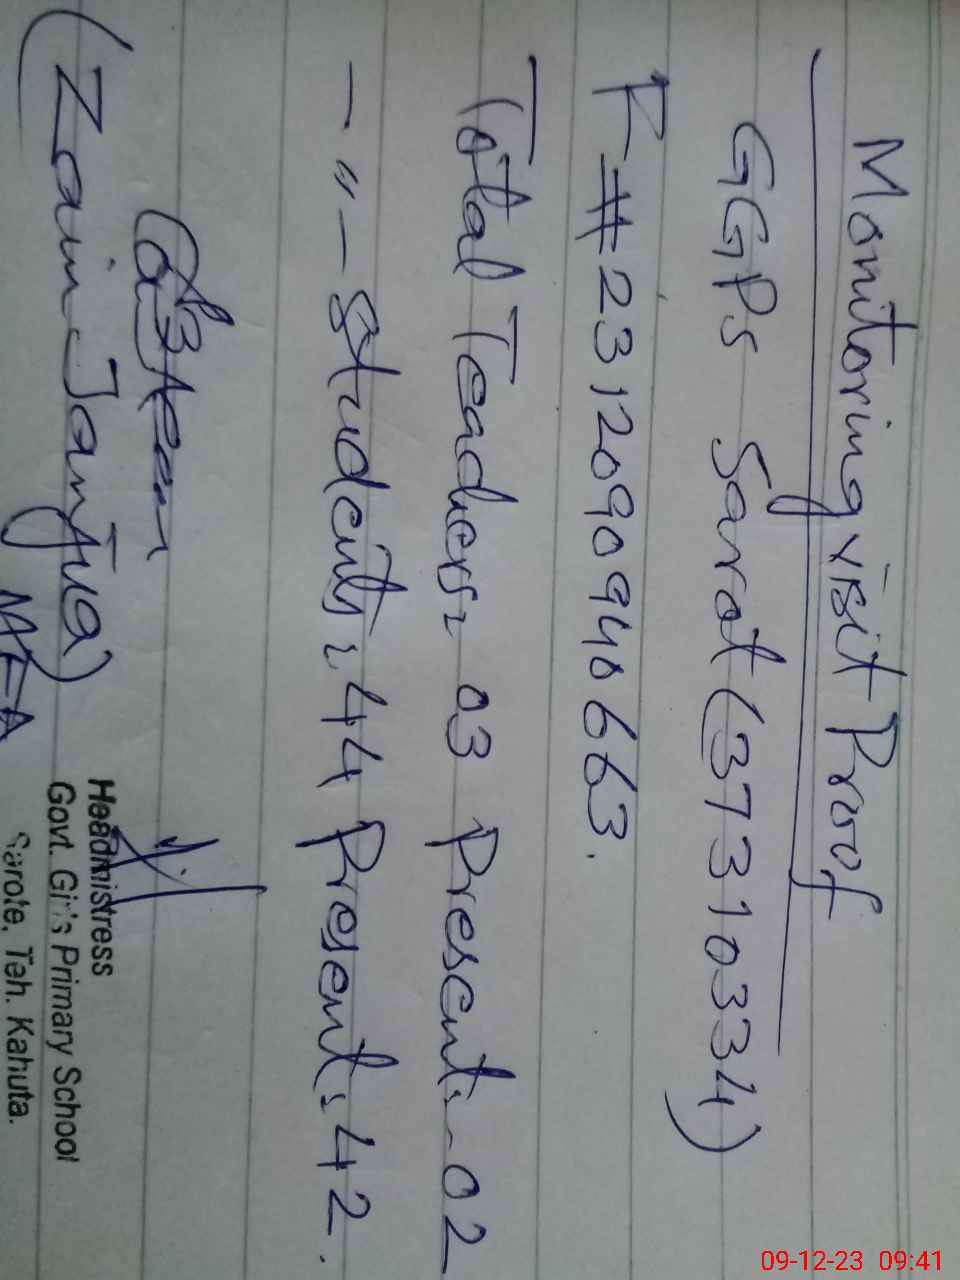 Monitoring visit Proof
GGPS Sarot (37310334)
R # 2312090940663.
Total Teachers: 03 Present: 02
- " - Students: 44 Present: 42.
(Zain Janjua)
MEA
Headmistress
Govt. Girls Primary School
Sarote, Teh. Kahuta.
09-12-23 09:41